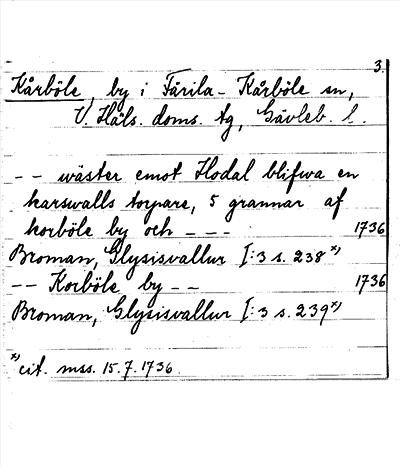 3.
Kårböle, by i Färila-Kårböle sn,
V. Häls. doms. tg, Gävleb. l.
-- wäster emot Hodal blifwa en
karswalls torpare, 5 grannar af
korböle by och --- 1736
Broman, Glysisvallur I:3 s. 238 x)
-- Korböle by -- 1736
Broman, Glysisvallur I:3 s. 239 x)
x) cit. mss. 15.7.1736